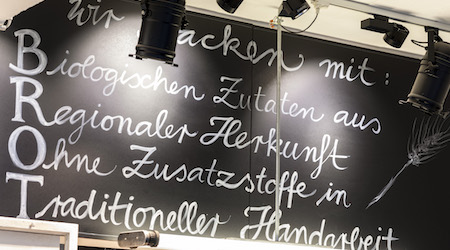 Wir backen mit:
Biologischen Zutaten aus
Regionaler Herkunft
Ohne Zusatzstoffe in
Traditioneller Handarbeit